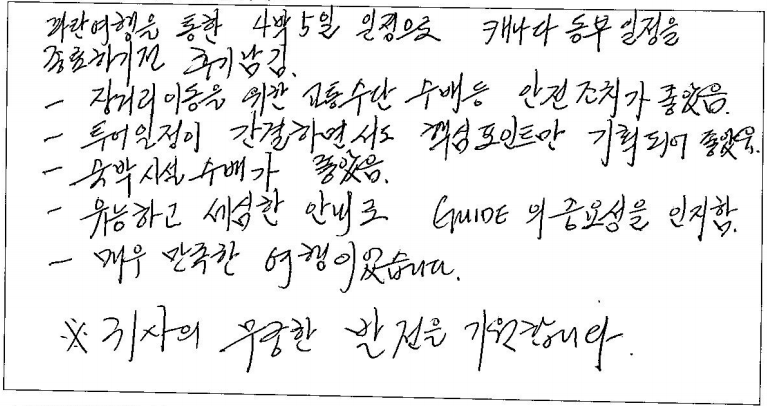 파란여행을 통한 4박5일 일정으로 캐나다 동부 일정을
종료하기전 후기 남김.
- 장거리 이동을 위한 교통수단 수배등 안전조치가 좋았음.
- 투어일정이 간결하면서도 핵심포인트만 기획되어 좋았음.
- 숙박시설 수배가 좋았음.
- 유능하고 세심한 안내로 GUIDE의 중요성을 인지함.
- 매우 만족한 여행이었습니다.
※ 귀사의 무궁한 발전을 기원합니다.